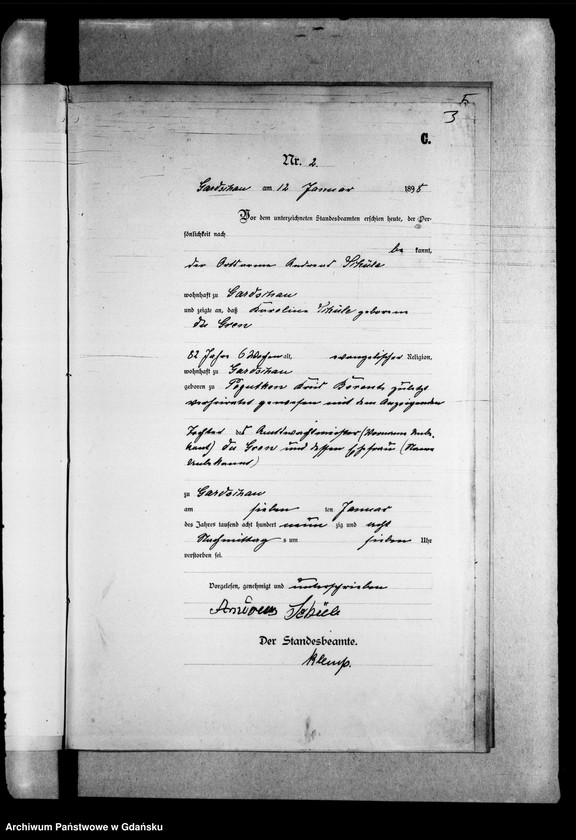 3
C.
Nr. 2.
Gardschau am 12 Januar 1898
Vor dem unterzeichneten Standesbeamten erschien heute, der Per-
sönlichkeit nach
be kannt,
der Ortsarme Andreas Schüle
wohnhaft zu Gardschau
und zeigte an, daß Karoline Schüle geborene
du Gren
82 Jahre 6 Wochen alt, evangelischer Religion,
wohnhaft zu Gardschau
geboren zu Kreis Berent zuletzt
verheiratet gewesen mit dem Anzeigenden
Tochter des Amtswachtmeister (Vorname unbe-
kannt) du Gren und dessen Ehefrau (Name
unbekannt)
zu Gardschau
am sieben ten Januar
des Jahres tausend acht hundert neun zig und acht
Nachmittag s um sieben Uhr
verstorben sei.
Vorgelesen, genehmigt und unterschrieben
Andreas Schüle
Der Standesbeamte.
Klemp.
Archiwum Państwowe w Gdańsku